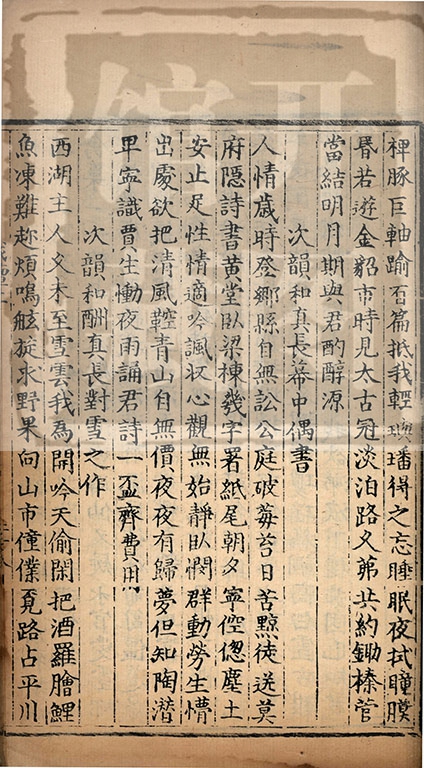 裨豚巨軸踰百篇抵我輕璵璠得之忘睡眠夜拭瞳朦
昏若遊金貂市時見太古冠淡泊路久茀共約鋤榛菅
當結明月期與君酌醇源
次韻和真長幕中偶書
人情歲時登鄉縣自無訟公庭破莓苔日苦黥徒送莫
府隱詩書黄堂臥梁棟幾字署紙尾朝夕寧倥偬塵土
安止足性情適吟諷収心觀無始靜臥憫群動勞生懵
出處欲把清風鞚青山自無價夜夜有歸夢但知陶潜
早寧識賈生慟夜雨誦君詩一盃齊費用
次韻和酬真長對雪之作
西湖主人久未至雪雲我為開吟天偷閑把酒羅膾鯉
魚凍難趂煩鳴舷旋求野果向山市僮僕覓路占平川